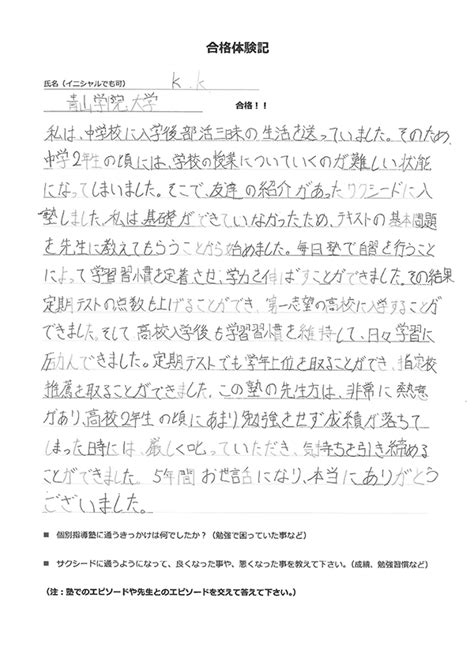 合格体験記
氏名（イニシャルでも可） K.K
青山学院大学 合格！！
私は、中学校に入学後部活三昧の生活を送っていました。そのため、
中学2年生の頃には、学校の授業についていくのが難しい状態
になってしまいました。そこで、友達の紹介があったサクシードに入
塾しました。私は基礎ができていなかったため、テキストの基本問題
を先生に教えてもらうことから始めました。毎日塾で自習を行うこと
によって学習習慣を定着させ、学力を伸ばすことができました。その結果
定期テストの点数も上げることができ、第一志望の高校に入学することが
できました。そして、高校入学後も学習習慣を維持して、日々学習に
励んできました。定期テストでも学年上位を取ることができ、指定校
推薦を取ることができました。この塾の先生方は、非常に熱意
があり、高校2年生の頃にあまり勉強をせず成績が落ちて
しまった時には、厳しく叱っていただき、気持ちを引き締める
ことができました。5年間お世話になり、本当にありがとう
ございました。
■ 個別指導塾に通うきっかけは何でしたか？（勉強で困っていた事など）
■ サクシードに通うようになって、良くなった事や、悪くなった事を教えて下さい。（成績、勉強習慣など）
（注：塾でのエピソードや先生とのエピソードを交えて答えて下さい。）